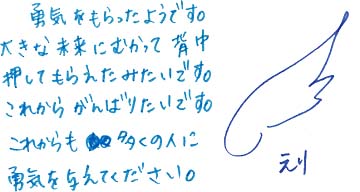 勇気をもらったようです。
大きな未来にむかって 背中
押してもらえたみたいです。
これから がんばりたいです。
これからも 多くの人に
勇気を与えてください。
えり